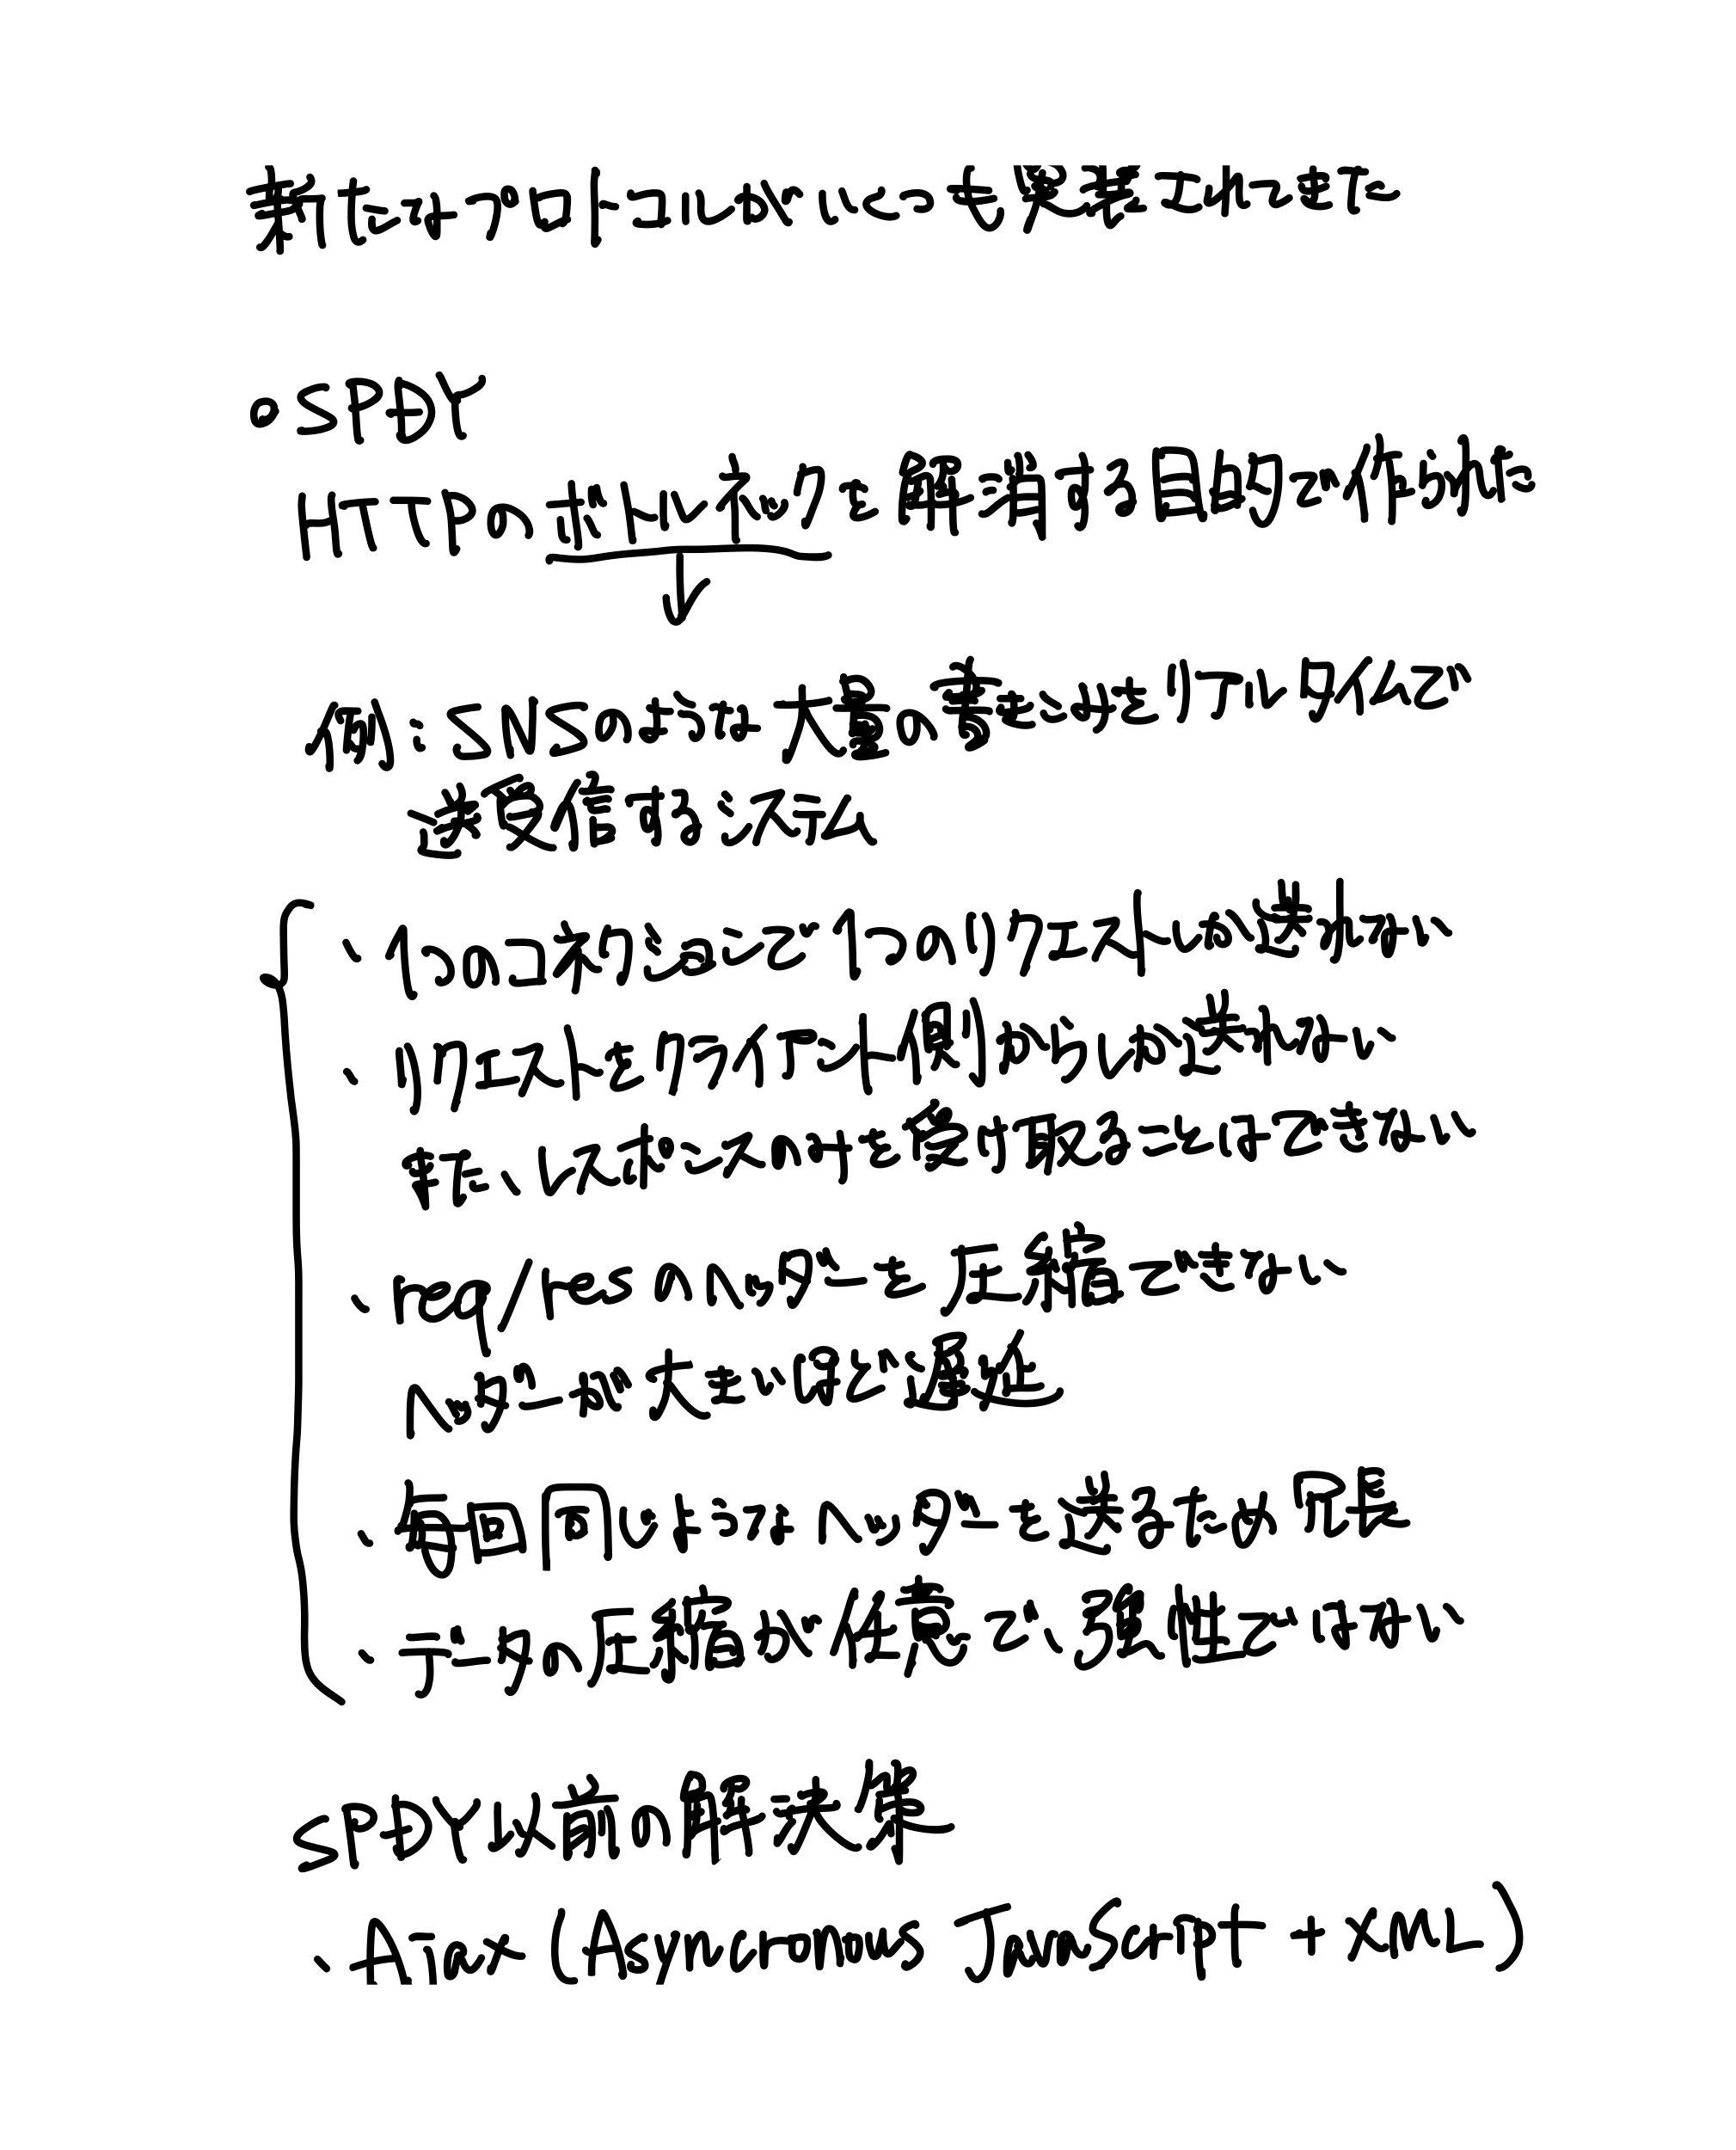 新たなプロトコルがいくつも提案されてきた
○SPDY
HTTPのボトルネックを解消する目的で作られた
例：SNSのような大量の書き込みをリアルタイムで
送受信するシステム
・1つのコネクションで1つのリクエストしか送れない
・リクエストはクライアント側からしか送れない
また、レスポンスのみを受け取ることはできない
・req/resのヘッダーを圧縮できない
ヘッダーが大きいほど遅延
・毎回同じようなヘッダーを送るため冗長
・データの圧縮が任意で、強性ではない
SPDY以前の解決策
・Ajax (Asyncronous JavaScript + XML)